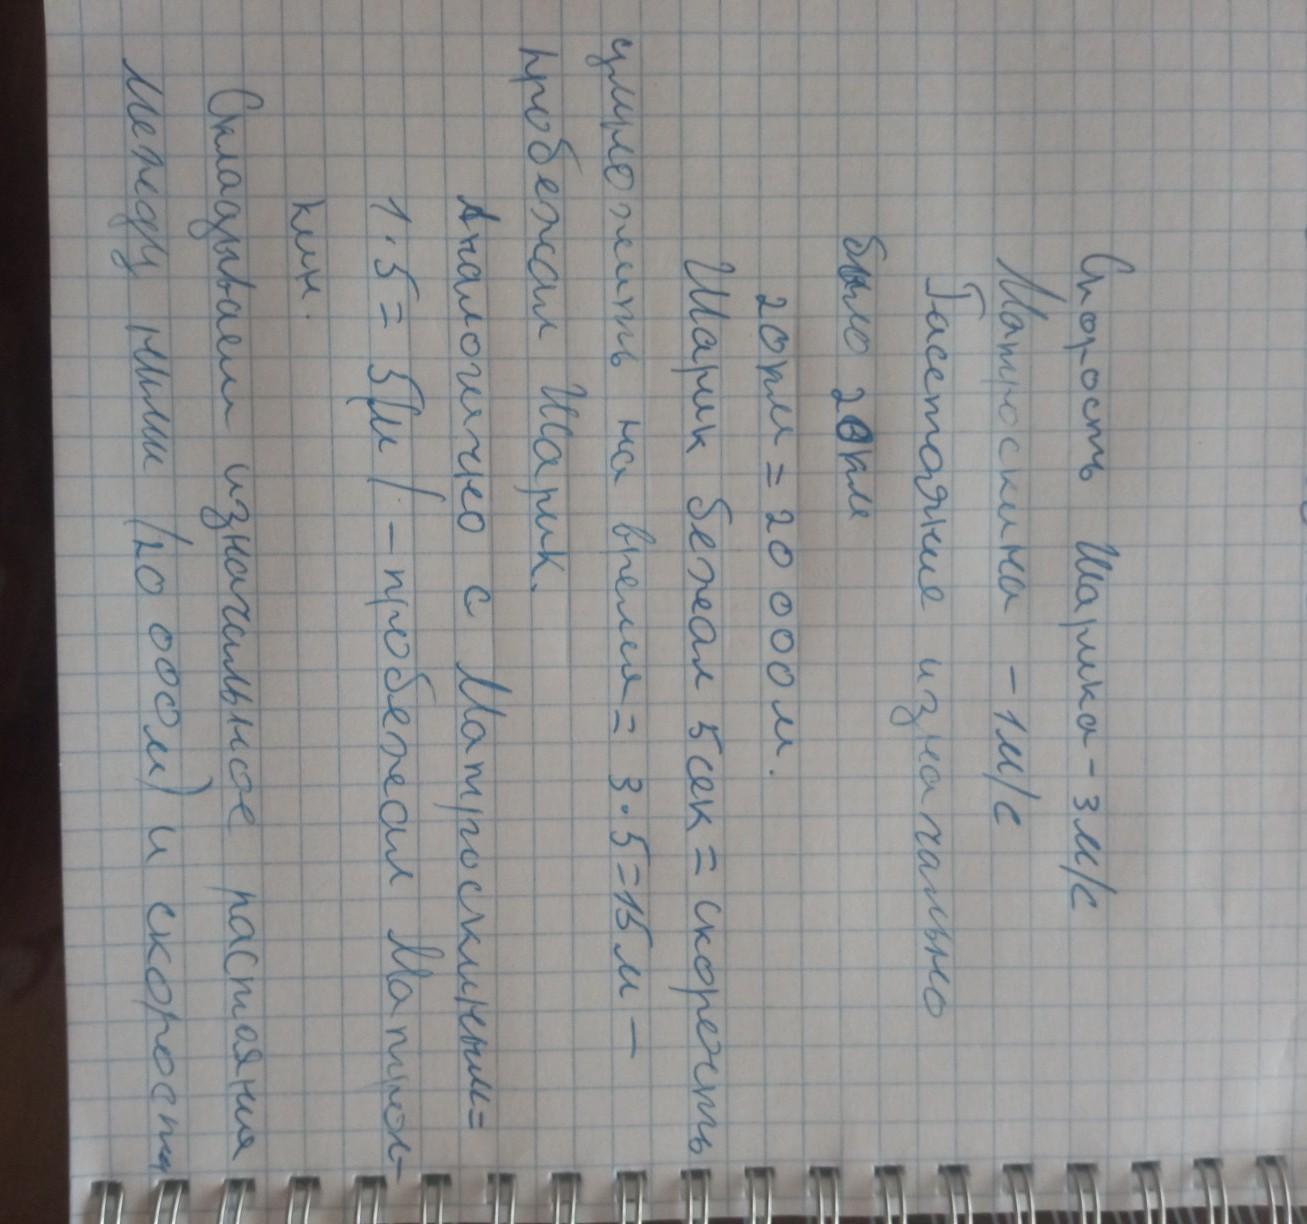 Скорость Шарика - 3м/с
Матроскина - 1м/с
Расстояние изначально
было 20км
20км = 20 000м.
Шарик бежал 5сек = скорость
умножить на время = 3·5=15м -
пробежал Шарик.
Аналогично с Матроскиным=
1·5 = 5(м) - пробежал Матрос-
кин.
Складываем изначальное растаяния
между ними (20 000м) и скорости